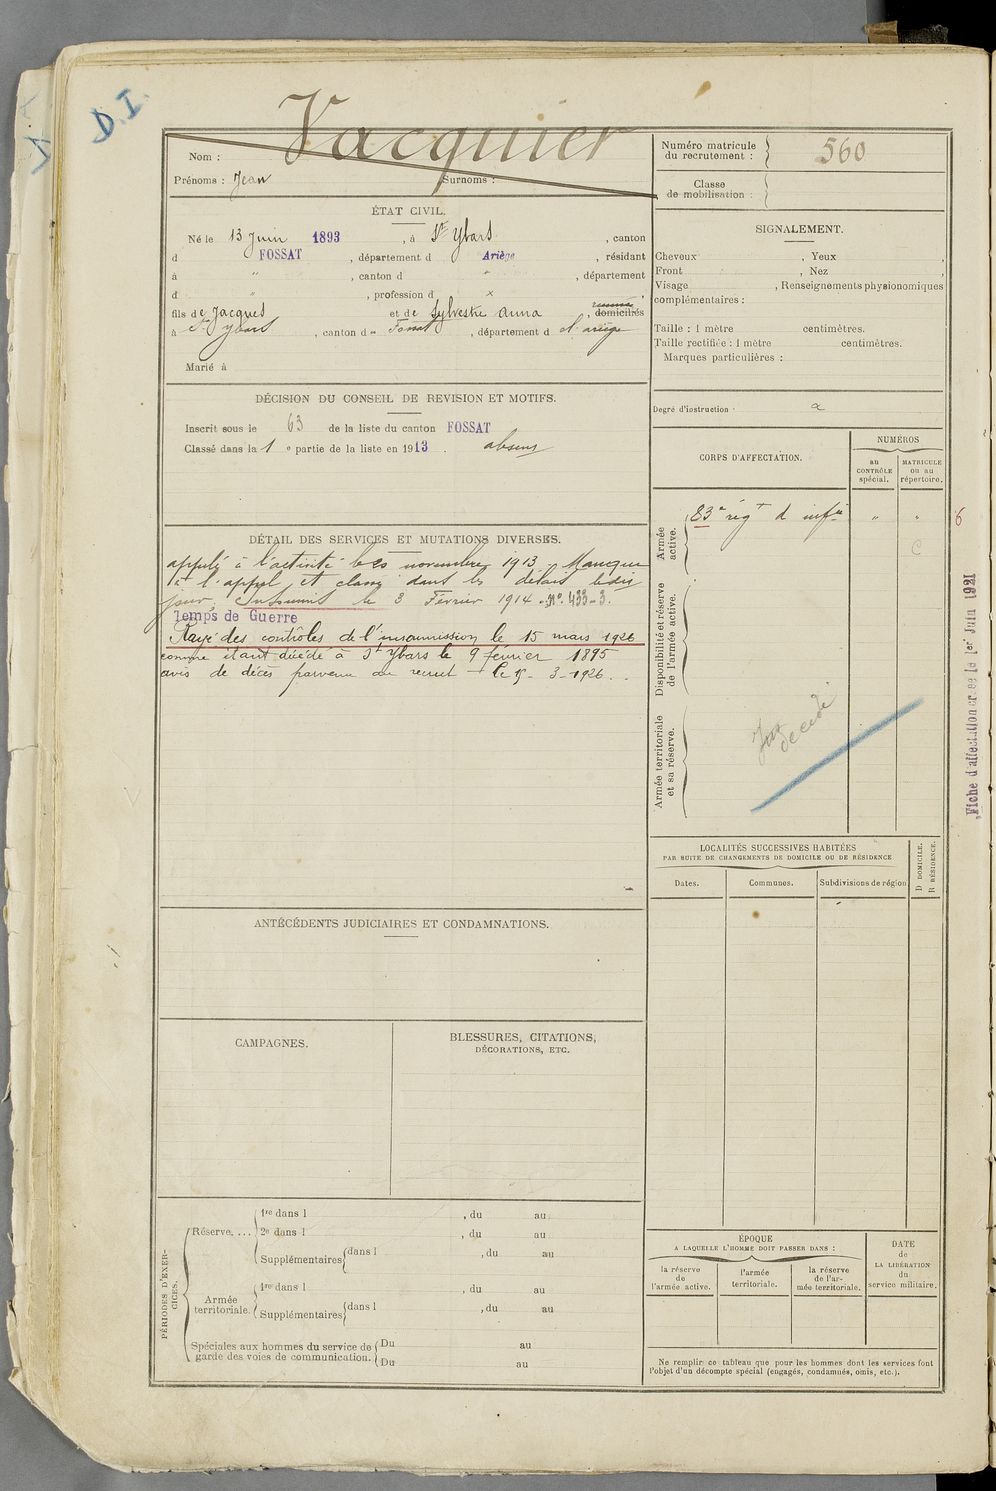 D.I.
Vacquier
Nom :
Prénoms : Jean Surnoms :
Numéro matricule
du recrutement : 560
Classe
de mobilisation :
ÉTAT CIVIL.
Né le 13 Juin 1893, à St Ybars, canton
d FOSSAT, département d Ariège, résidant
à " , canton d " , département
d " , profession d x
fils de Jacques et de Sylvestre Anna, domiciliés
à St Ybars, canton d Fossat, département d l'ariège
Marié à
SIGNALEMENT.
Cheveux , Yeux ,
Front , Nez ,
Visage , Renseignements physionomiques
complémentaires :
Taille : 1 mètre centimètres.
Taille rectifiée : 1 mètre centimètres.
Marques particulières :
Degré d'instruction
DÉCISION DU CONSEIL DE REVISION ET MOTIFS.
Inscrit sous le 63 de la liste du canton FOSSAT
Classé dans la 1 e partie de la liste en 1913. absent
CORPS D'AFFECTATION.
NUMÉROS
au
CONTRÔLE
spécial.
MATRICULE
ou au
répertoire.
Armée
active.
83e régt d infie " "
6
C
Disponibilité et réserve
de l'armée active.
Armée territoriale
et sa réserve.
décédé
Fiche d'affectation créée le 1er Juin 1921
DÉTAIL DES SERVICES ET MUTATIONS DIVERSES.
appelé à l'activité le 20 novembre 1913 Manque
à l'appel et classé dans les délais
jour. Insoumis le 3 Février 1914 . N° 433-3.
Temps de Guerre
Rayé des contrôles de l'insoumission le 15 mars 1926
comme étant décédé à St Ybars le 9 février 1895
avis de décès parvenu au recrut t le 15-3-1926.
LOCALITÉS SUCCESSIVES HABITÉES
PAR SUITE DE CHANGEMENTS DE DOMICILE OU DE RÉSIDENCE
Dates.
Communes.
Subdivisions de région
D DOMICILE.
R RÉSIDENCE.
ANTÉCÉDENTS JUDICIAIRES ET CONDAMNATIONS.
CAMPAGNES.
BLESSURES, CITATIONS,
DÉCORATIONS, ETC.
PÉRIODES D'EXER-
CICES.
Réserve....
1re dans l , du au
2e dans l , du au
Supplémentaires dans l , du au
Armée
territoriale.
1re dans l , du au
Supplémentaires dans l , du au
Spéciales aux hommes du service de
garde des voies de communication.
Du au
Du au
ÉPOQUE
A LAQUELLE L'HOMME DOIT PASSER DANS :
la réserve
de
l'armée active.
l'armée
territoriale.
la réserve
de l'ar-
mée territoriale.
DATE
de
LA LIBÉRATION
du
service militaire.
Ne remplir ce tableau que pour les hommes dont les services font
l'objet d'un décompte spécial (engagés, condamnés, omis, etc.).